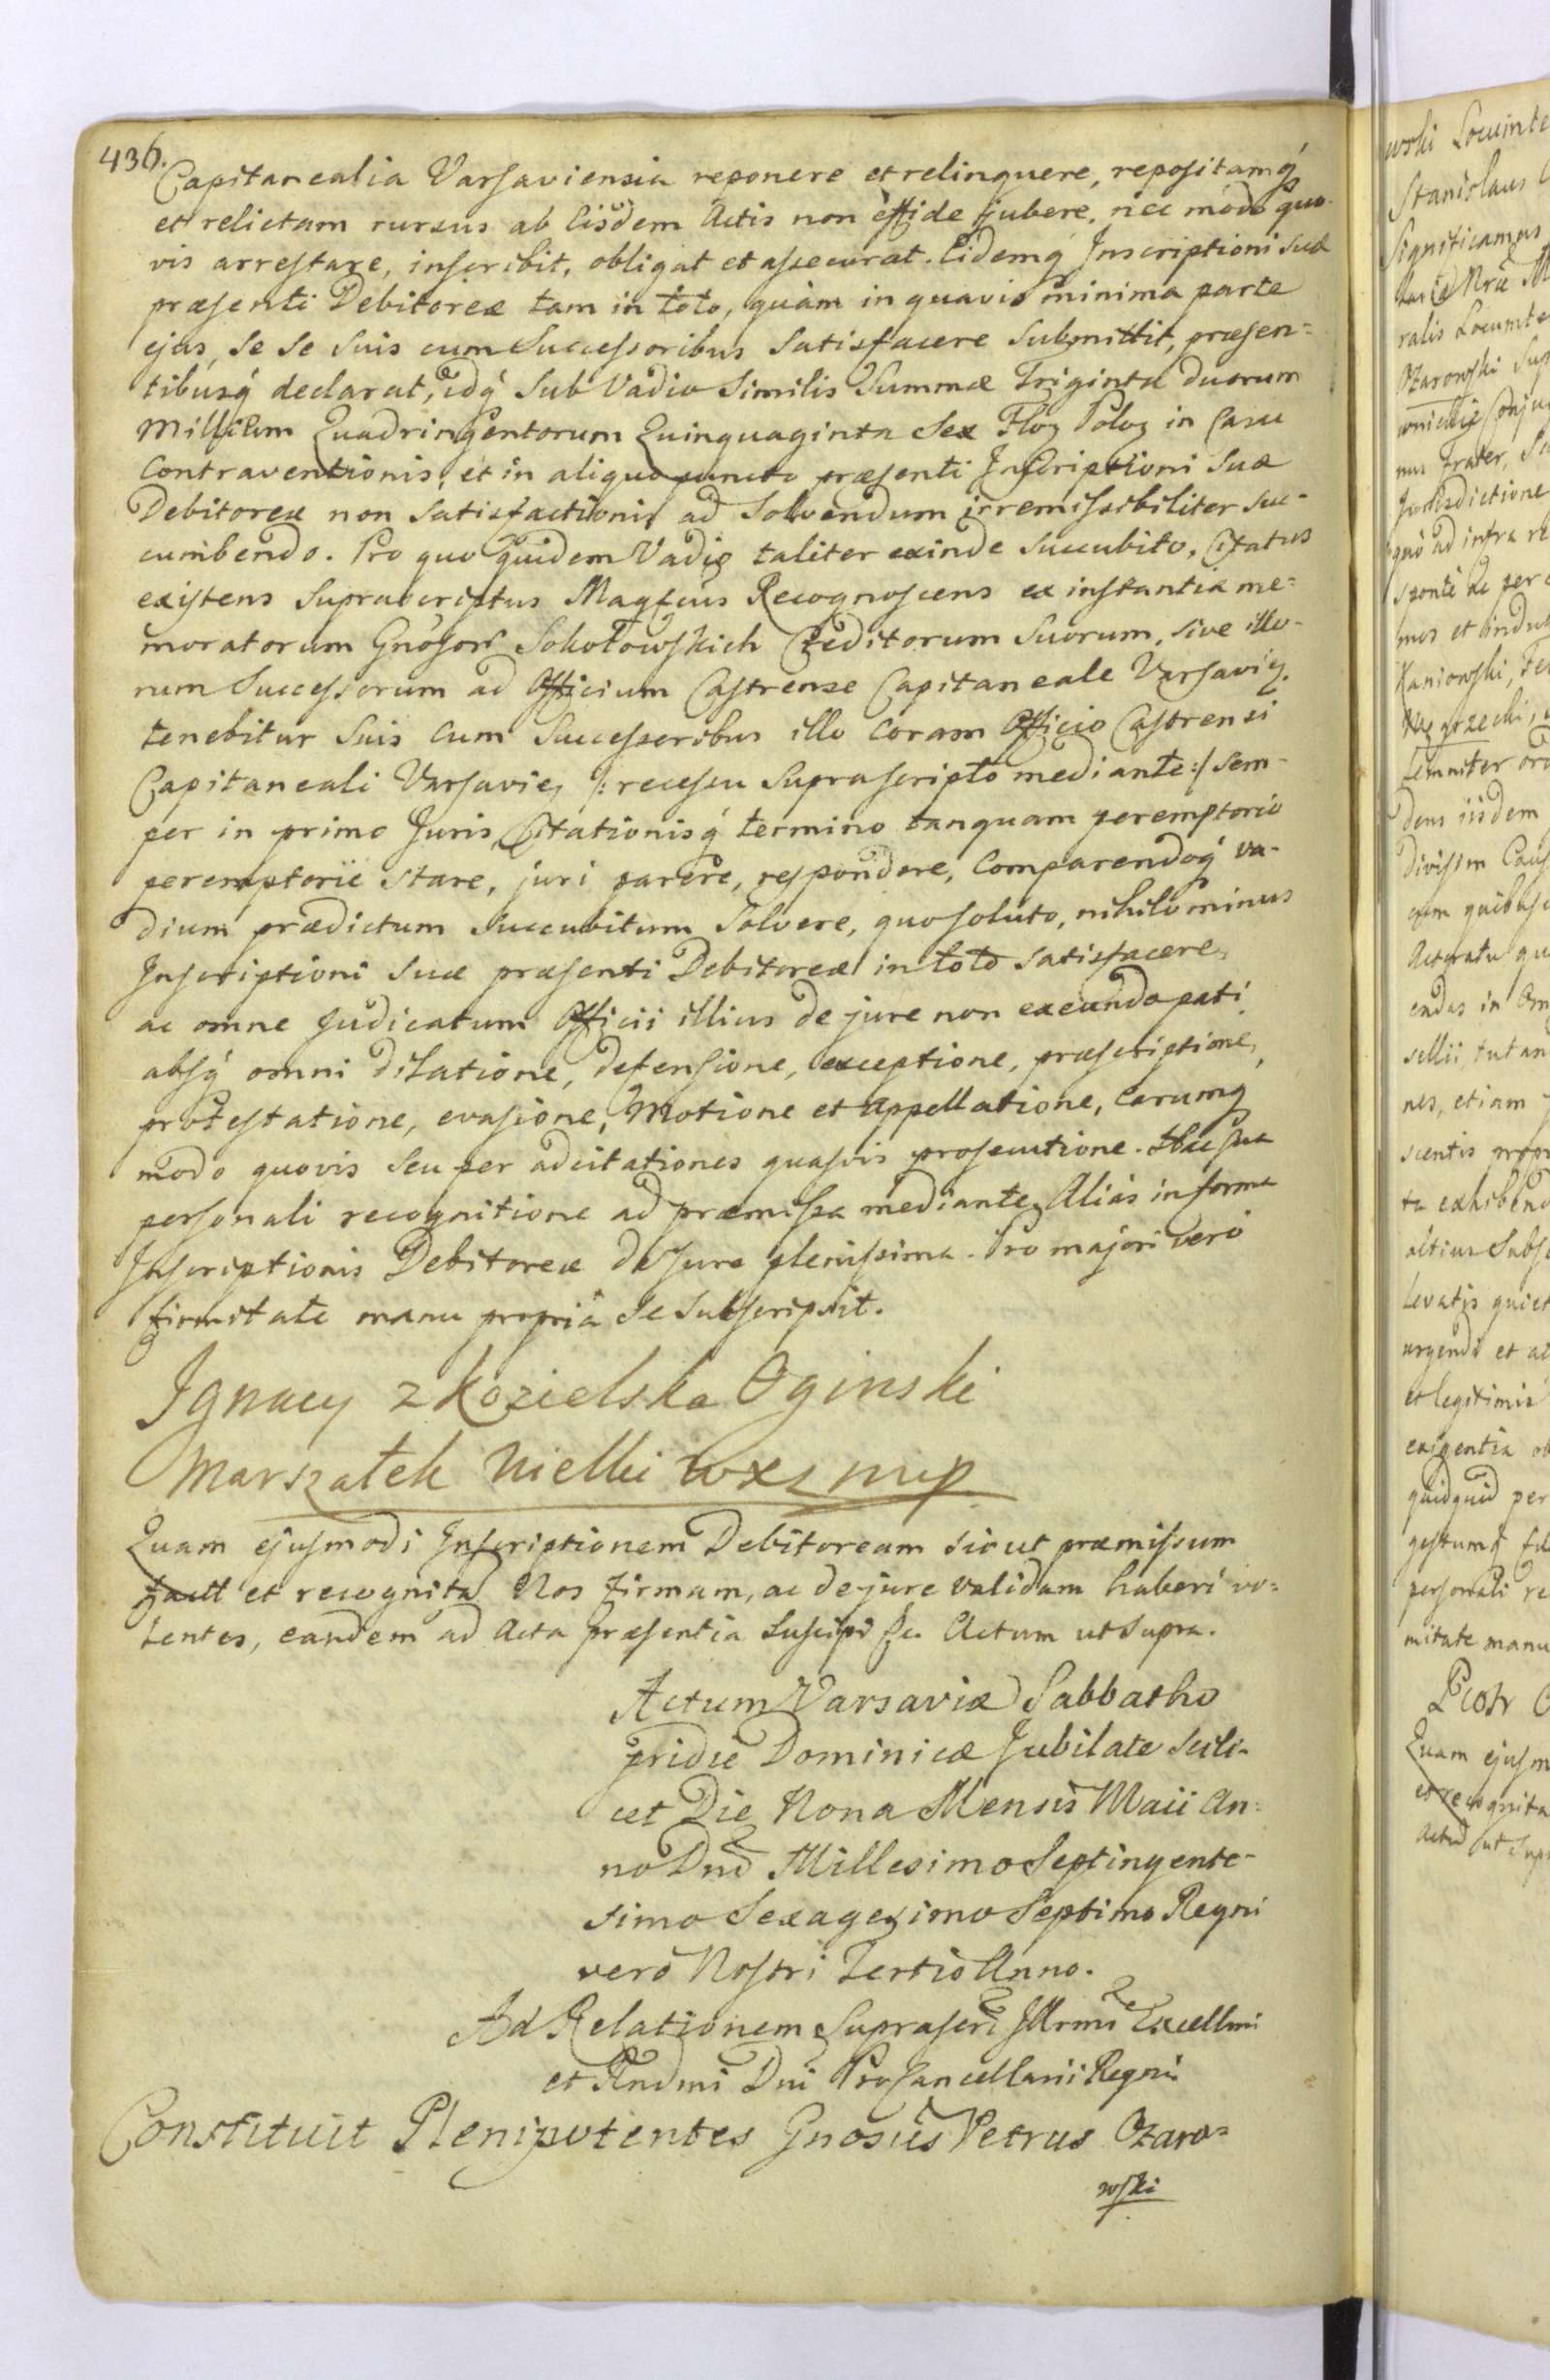 436.
Capitanealia Varsaviensia reponere et relinquere, repositamq́
et relictam rursus ab Eisdem Actis non effide jubere, nec modo quo-
vis arrestare, inscribit, obligat et assecurat. Eidemq́ Inscriptioni suæ
præsenti Debitoreæ tam in toto, quàm in quavis minima parte
ejus, se se suis cum Successoribus satisfacere submittit, præsen=
tibusq́ declarat, idq́ sub Vadio similis Summæ Triginta duorum
Millium Quadringentorum Quinquaginta Sex Floz Poloz in Casu
Contraventionis, et in aliquo puncto præsenti Inscriptioni suæ
Debitoreæ non satisfactionis ad solvendum irremissibiliter suc-
cumbendo. Pro quo quidem Vadio taliter exinde succubito, Citatus
existens suprascriptus Magficus Recognoscens ex instantia me=
moratorum Gnosor Sokołowskich Creditorum suorum, sive illo-
rum Successorum ad Officium Castrense Capitaneale Varsavieg.
tenebitur suis cum Successoribus illo coram Officio Castrensi
Capitaneali Varsavieg /: recessu suprascripto mediante :/ sem-
per in primo Juris, Citationisq́ termino tanquam peremptorio
peremptorie stare, juri parere, respondere, comparendoq́ va-
dium prædictum succubitum solvere, quo soluto, nihilominus
Inscriptioni suæ præsenti Debitoreæ in toto satisfacere,
ac omne judicatum Officii illius de jure non exeundo pati
absq́ omni dilatione, defensione, exceptione, præscriptione,
protestatione, evasione, Motione et appellatione, earumq
modo quovis seu per adcitationes quasvis prosecutione. Hac sua
personali recognitione ad præmissa mediante. Aliàs in forma
Inscriptionis Debitoreæ de jure plenissima. Pro majori verò
firmitate manu propriâ se subscripsit.
Ignacy z Kozielska Oginski
Marszałek Wielki WXL mp
Quam ejusmodi Inscriptionem Debitoream sicut præmissum
et recognita Nos firmam, ac de jure validam haberi vo=
lentes, eandem ad Acta præsentia suscipi &c. Actum ut supra.
Actum Varsaviæ Sabbatho
pridie Dominicæ Jubilate scili-
cet Die Nona Mensis Maii An=
no Dni Millesimo Septingente-
simo Sexagesimo Septimo Regni
verò Nostri Tertio Anno.
Ad Relationem suprascri Illrmi Excellmi
et Rndmi Dni ProCancellarii Regni
Constituit Plenipotentes Gnosus Petrus Ożaro=
wski
wski Locumte
Stanislaus
Significamus
ralis Locumte
Ożarowski Sup
nus Frater,
Jurisdictione
quò ad infra
sponte ac per
mos et
Kaniowski,
Węgrzecki,
dens iisdem
divisim Caus
cum quibus
Actoratu qu
endas in Om
sellii, tutan
nes, etiam
scientis propr
ta exhibend
altius subs
levatis quiet
urgendi et ac
et legitimis
exigentia ob
quidquid per
gestumq́
personali re
mitate manu
Piotr O
Quam ejusm
et recognita
Actu ut supr